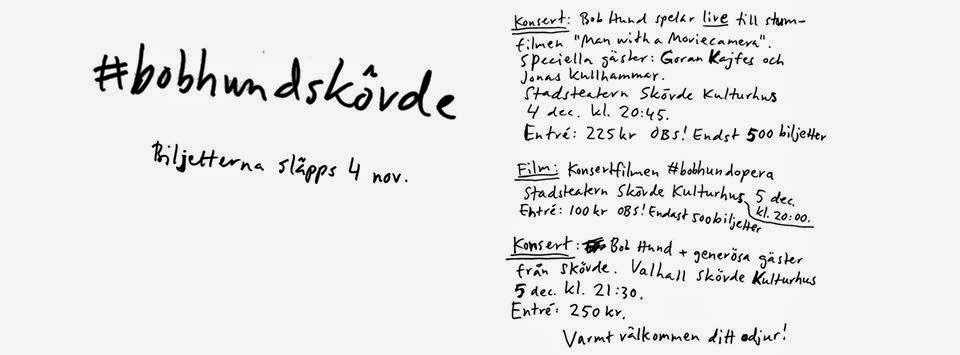 #bobhundskövde
Biljetterna släpps 4 nov.
Konsert: Bob Hund spelar live till stum-
filmen "Man with a Moviecamera".
speciella gäster: Goran Kajfes och
Jonas Kullhammar.
Stadsteatern Skövde Kulturhus
4 dec. kl. 20:45.
Entré: 225 kr OBS! Endst 500 biljetter
Film: Konsertfilmen #bobhundopera
Stadsteatern Skövde Kulturhus 5 dec.
kl. 20:00.
Entré: 100 kr OBS! Endast 500 biljetter
Konsert: Bob Hund + generösa gäster
från Skövde. Valhall Skövde Kulturhus
5 dec. kl. 21:30.
Entré: 250 kr.
Varmt välkommen ditt odjur!